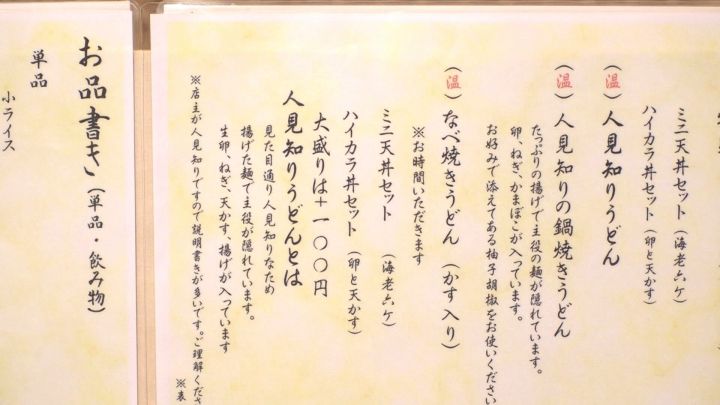 ミニ天丼セット（海老六ケ）
ハイカラ丼セット（卵と天かす）
（温）人見知りうどん
（温）人見知りの鍋焼きうどん
たっぷりの揚げで主役の麺が隠れています。
卵、ねぎ、かまぼこが入っています。
お好みで添えてある柚子胡椒をお使いください
（温）なべ焼きうどん（かす入り）
※お時間いただきます
ミニ天丼セット（海老六ケ）
ハイカラ丼セット（卵と天かす）
大盛りは＋一〇〇円
人見知りうどんとは
見た目通り人見知りなため
揚げた麺で主役が隠れています。
生卵、ねぎ、天かす、揚げが入っています
※店主が人見知りですので説明書きが多いです。ご理解くださ
※表
お品書き（単品・飲み物）
単品
小ライス